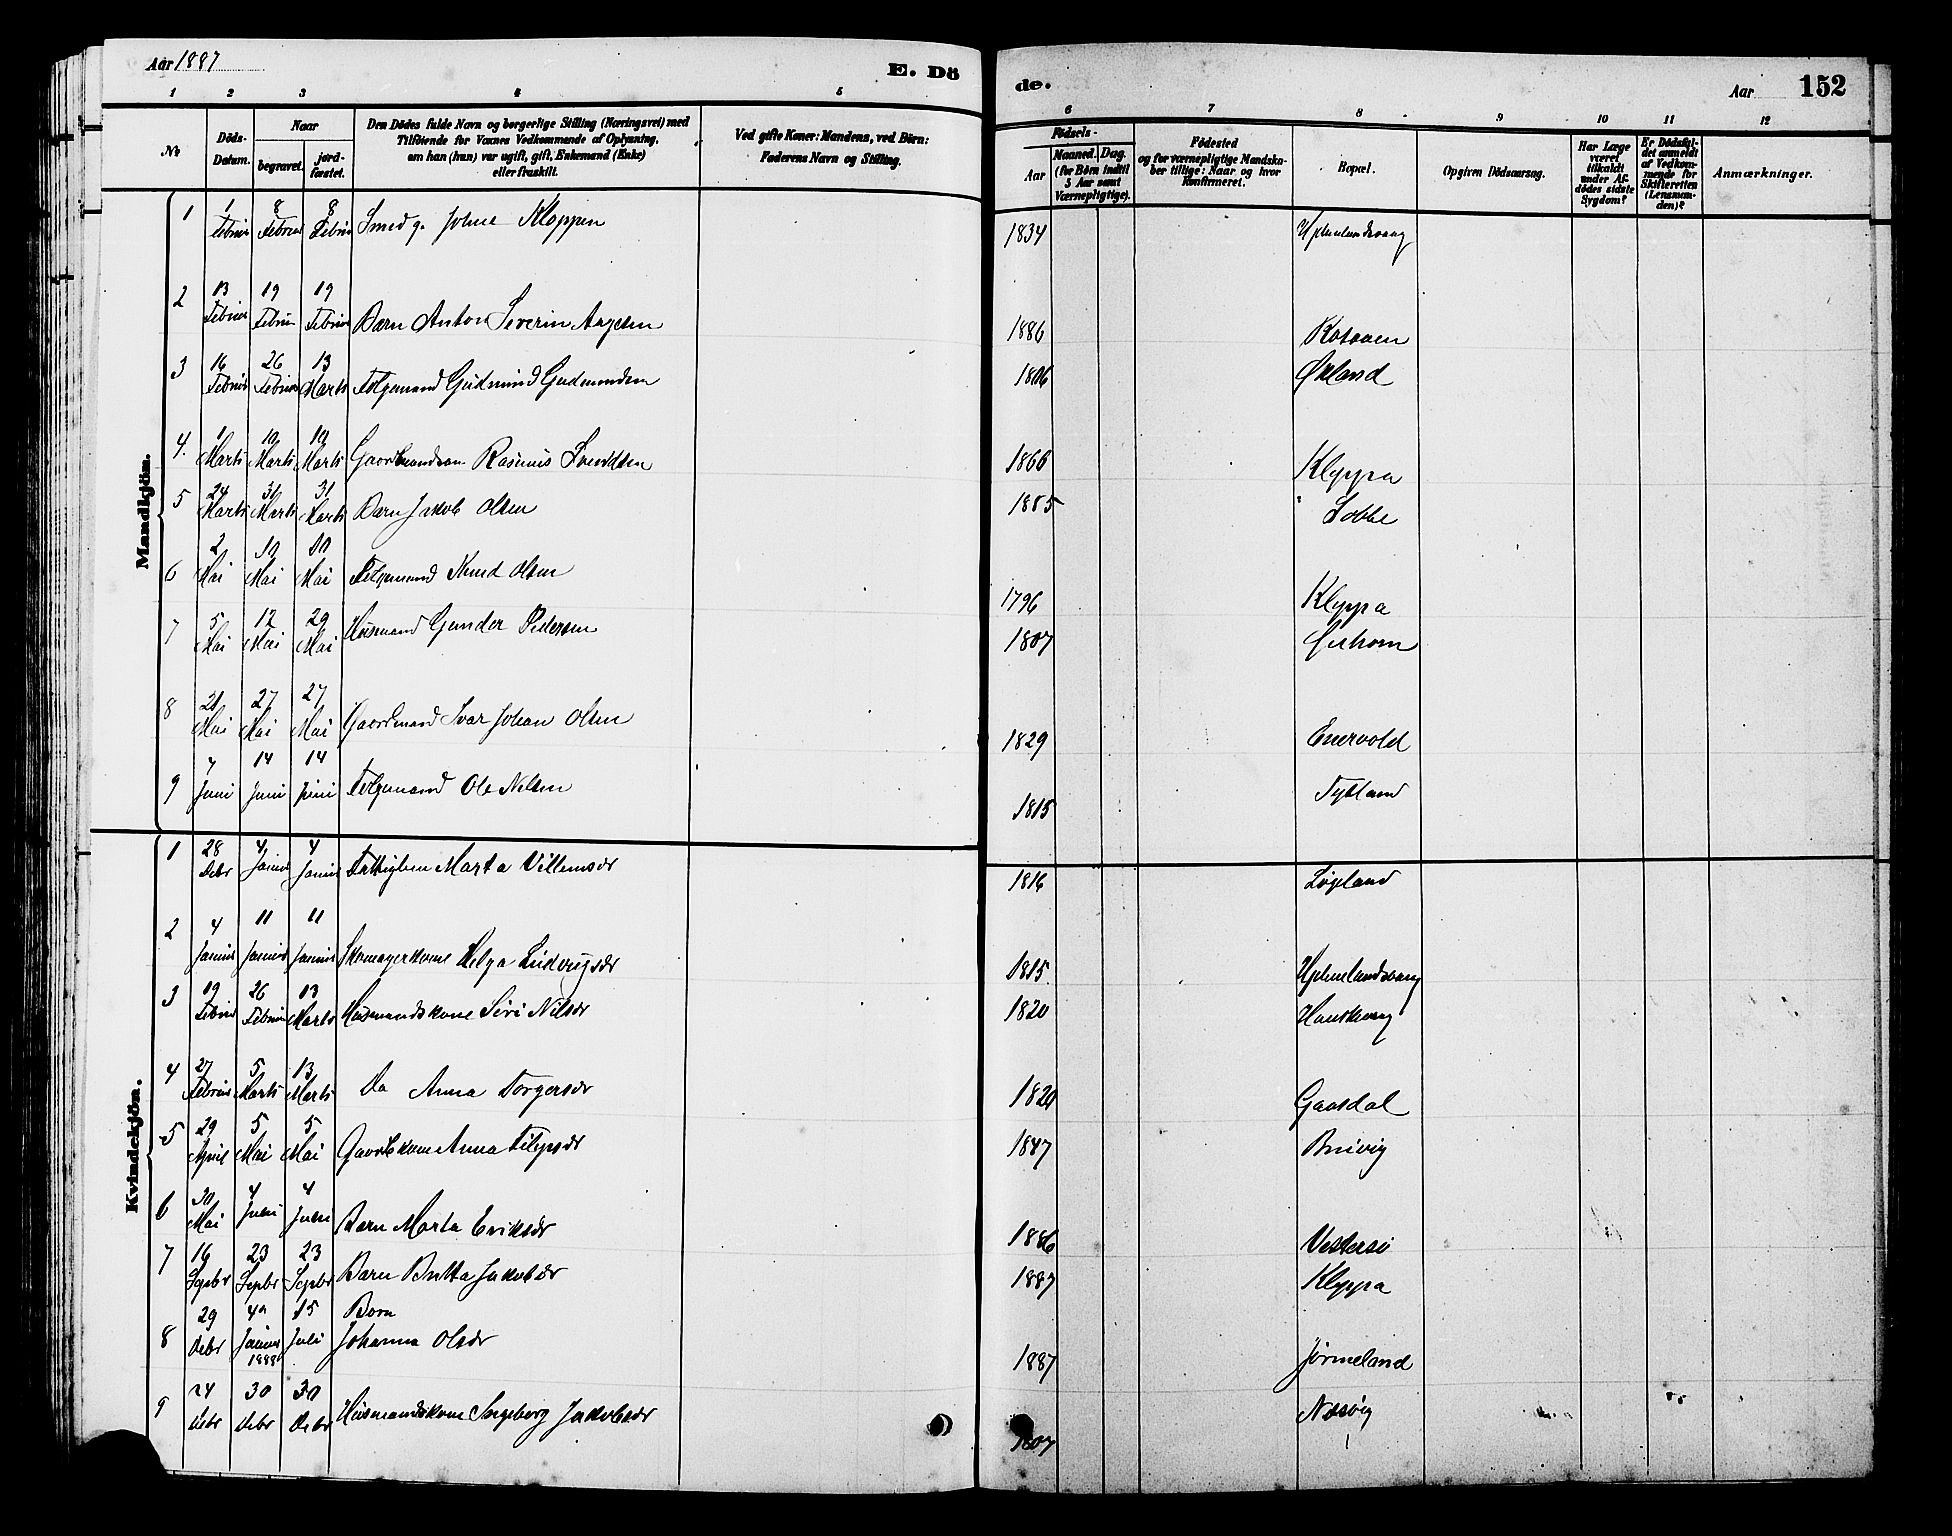 Aar 1887
E. Dö
de.
Aar
152
1 2 3 4 5
6 7 8 9 10 11 12
Nr
Döds-Datum.
Naar
begravet.
jord-fæstet.
Den Dödes fulde Navn og borgerlige Stilling (Næringsvei) med
Tilföiende for Voxnes Vedkommende af Oplysning,
om han (hun) var ugift, gift, Enkemand (Enke)
eller fraskilt.
Ved gifte Koner: Mandens, ved Börn:
Faderens Navn og Stilling.
Födsels-
Aar
Maaned. Dag.
(for Börn indtil
5 Aar samt
Værnepligtige).
Födested
og for værnepligtige Mandska-
ber tillige: Naar og hvor
Konfirmeret.
Bopæl.
Opgiven Dödsaarsag.
Har Læge
været
tilkaldt
under Af-
dödes sidste
Sygdom?
Er Dödsfal-
det anmeldt
af Vedkom-
mende for
Skifteretten
(Lensman-
den)?
Anmærkninger.
Mandkjön.
1 1 Februar 8 Februar 8 Februar Smed g. Johne Kloppen 1834
2 13 Februar 19 Februar 19 Februar Barn Anton Severin Aagesen 1886
3 16 Februar 26 Februar 13 Marts Gudmund Gudmundsen 1806 Økland
4. 1 Marts 10 Marts 10 Marts Gaardmandsøn Rasmus 1866 Kleppa
5 24 Marts 31 Marts 31 Marts Barn Jakob Olsen 1885
6 2 Mai 10 Mai 10 Mai Knud Olsen 1796 Kleppa
7 5 Mai 12 Mai 29 Mai Husmand Gunder Pedersen 1807
8 21 Mai 27 Mai 27 Mai Gaardmand Ivar Johan Olsen 1829 Enervold
9 7 Juni 14 Juni 14 Juni Ole Nilsen 1815 Tytland
Kvindekjön.
1 28 Debr 4 Januar 4 Januar Marta Villumsdr 1816 Løgland
2 4 Januar 11 Januar 11 Januar Skomagerkone Helga Ludvigsdr 1815.
3 19 Februar 26 Februar 13 Marts Husmandskone Siri Nilsdr 1820
4 27 Februar 5 Marts 13 Marts Do Anna Torgersdr 1820 Gaasdal
5 29 April 5 Mai 5 Mai Gaardkone Anna Filipsdr 1847
6 30 Mai 4 Juni 4 Juni Barn Marta Eriksdr 1886 Vestersø
7 16 Sepbr 23 Sepbr 23 Sepbr Barn Britta Jakobsdr 1887 Kleppa
8 29 Debr 4 Januar 1888 15 Juli Barn
Johanna Olsdr 1887 Jørmeland
9 24 Debr 30 Debr 30 Debr Husmandskone Ingeborg Jakobsdr 1807 Næsvig